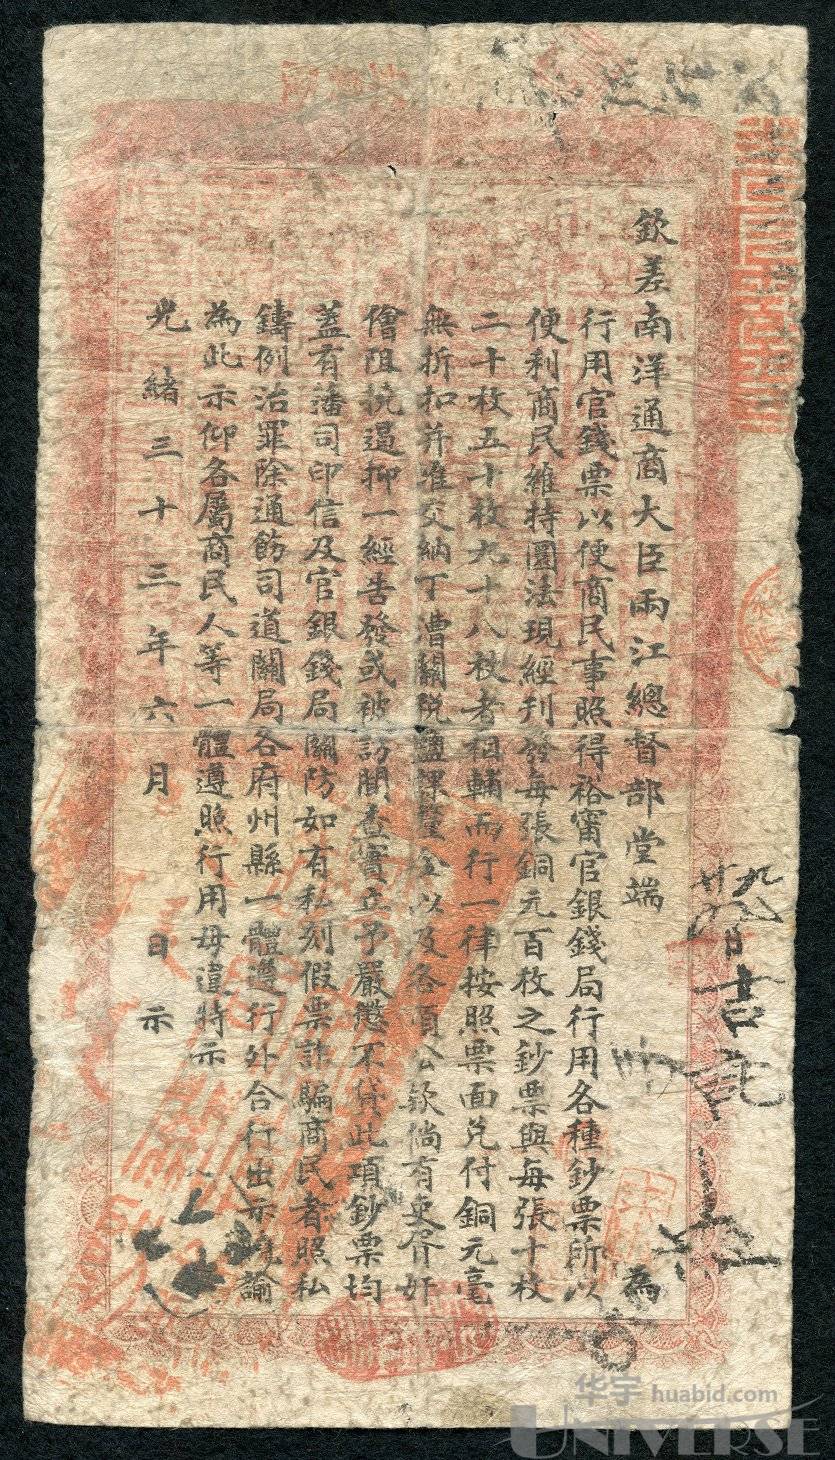 欽差南洋通商大臣兩江總督部堂端 為
行用官錢票以便商民事照得裕甯官銀錢局行用各種鈔票所以
便利商民維持圜法現經刊發每張銅元百枚之鈔票與每張十枚
二十枚五十枚九十八枚者相輔而行一律按照票面兌付銅元毫
無折扣并准交納丁漕關稅鹽課釐金以及各項公欵倘有吏胥奸
儈阻抗遏抑一經告發或被訪聞查實立予嚴懲不貸此項鈔票均
蓋有藩司印信及官銀錢局關防如有私刻假票詐騙商民者照私
鑄例治罪除通飭司道關局各府州縣一體遵行外合行出示曉諭
為此示仰各屬商民人等一體遵照行用毋違特示
光緒三十三年六月 日示
华宇 huabid.com
UNIVERSE